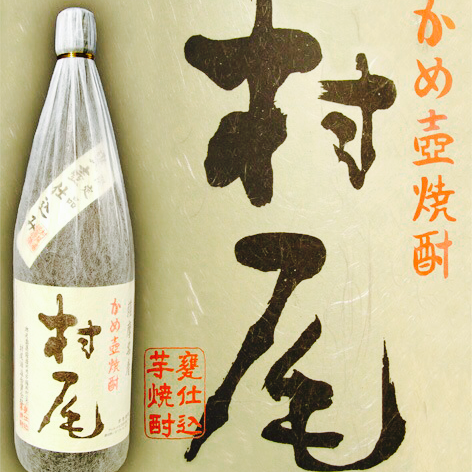 かめ壺焼酎
村尾
甕仕込
芋焼酎
壺仕込み
かめ壺焼酎
村尾